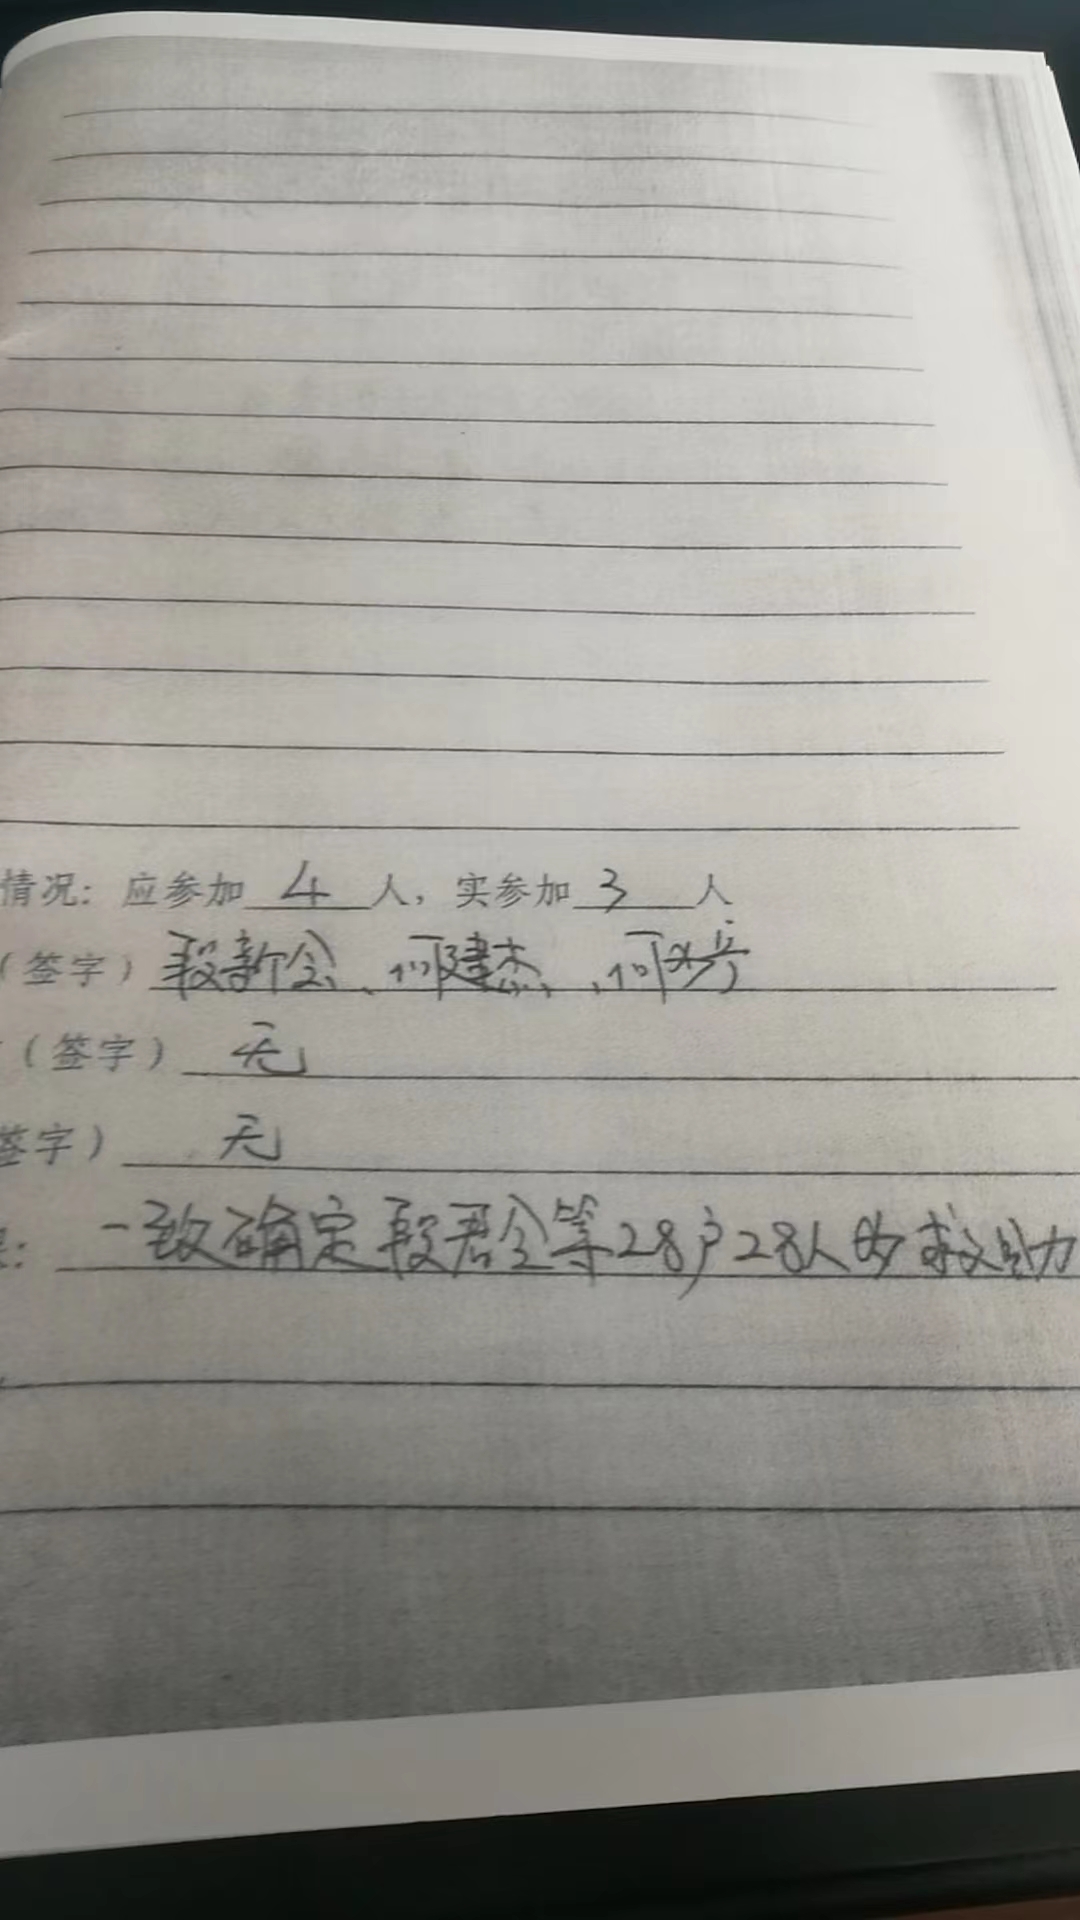 情况：应参加 4 人，实参加 3 人
（签字）段新会、何建杰、何
（签字） 无
签字） 无
：一致确定段君会等28户28人的救助